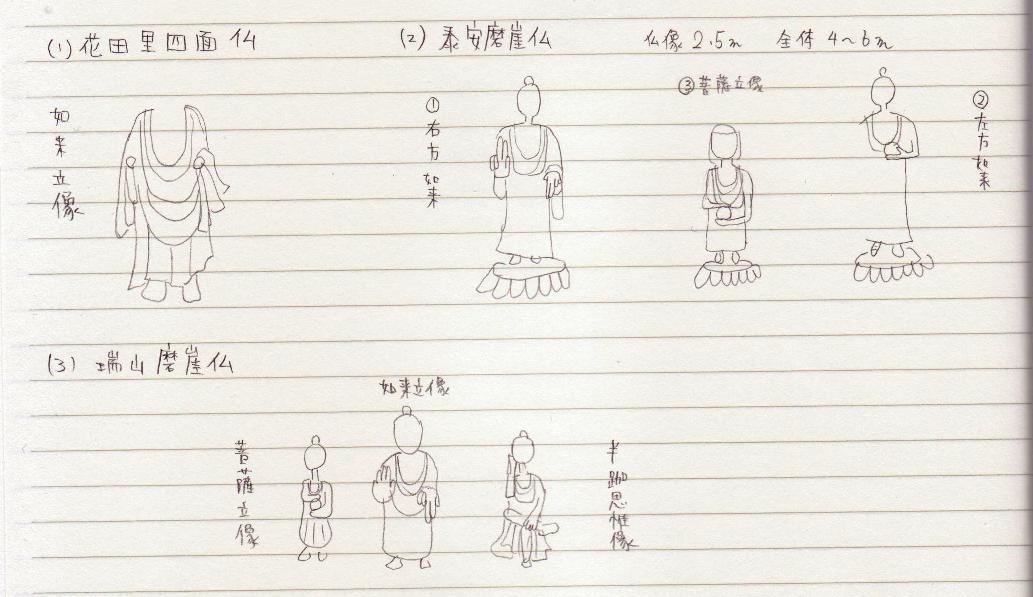 (1) 花田里四面仏
(2) 泰安磨崖仏 仏像 2.5m 全体 4〜6m
如来立像
①右方如来
③菩薩立像
②左方如来
(3) 瑞山磨崖仏
如来立像
菩薩立像
半跏思惟像